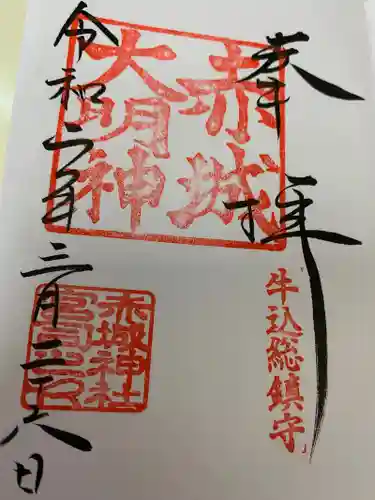 奉拝
赤城
大明神
牛込総鎮守
令和二年
三月二十八日
赤城神社